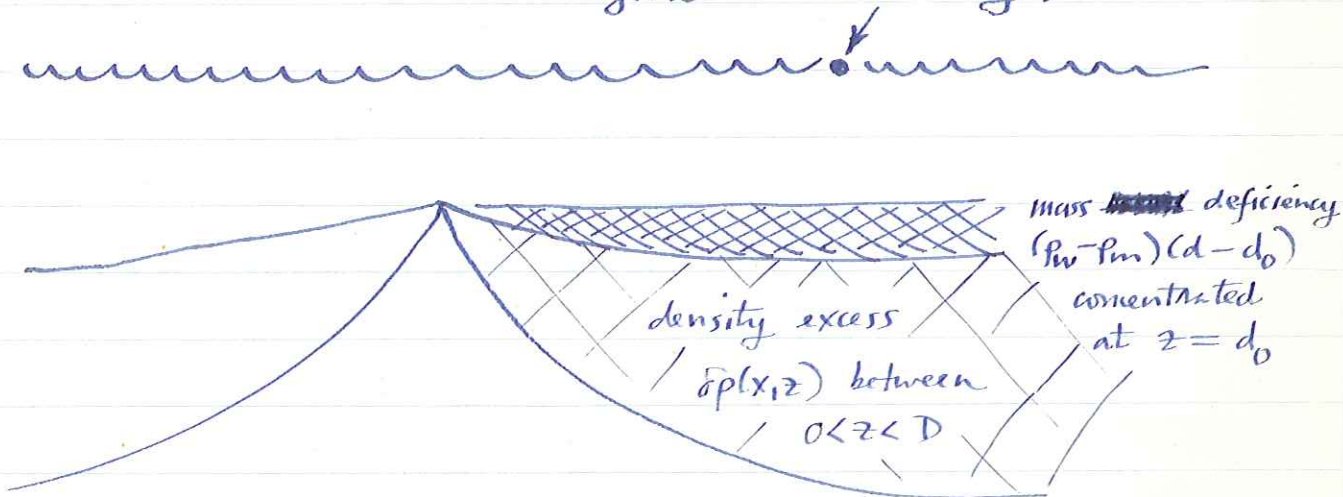 mass deficiency
(ρw-ρm)(d-d₀)
concentrated
at z = d₀
density excess
δρ(x,z) between
0<z<D